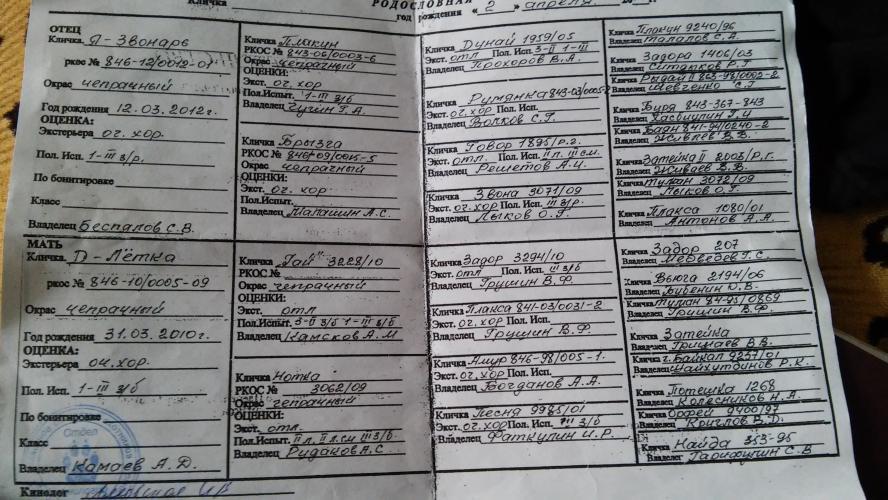 Кличка РОДОСЛОВНАЯ
год рождения « 2 » апреля
ОТЕЦ
Кличка Я-Звонарь
ркос № 846-12/0012-01
Окрас чепрачный
Год рождения 12.03.2012г.
ОЦЕНКА:
Экстерьера оч. хор.
Пол. Исп. 1-III з/р.
По бонитировке
Класс
Владелец Беспалов С.В.
МАТЬ
Кличка Д-Лётка
ркос № 846-10/0005-09
Окрас чепрачный
Год рождения 31.03.2010г.
ОЦЕНКА:
Экстерьера оч. хор.
Пол. Исп. 1-III з/б
По бонитировке
Класс
Владелец Камаев А.Д.
Кинолог
Кличка Плакин
РКОС № 843-06/0003-6
Окрас чепрачный
ОЦЕНКИ:
Экст. оч. хор
Пол.Испыт. 1-III з/б
Владелец Чугин Г.А.
Кличка Брызга
РКОС № 846-09/0015-5
Окрас чепрачный
ОЦЕНКИ:
Экст. оч. хор.
Пол.Испыт.
Владелец Малашин А.С.
Кличка "Гай" 3228/10
РКОС №
Окрас чепрачный
ОЦЕНКИ:
Экст. отл
Пол.Испыт. 3-II з/б 1-III з/б
Владелец Камсков А.М
Кличка Нотка
РКОС № 3062/09
Окрас чепрачный
ОЦЕНКИ:
Экст. отл.
Пол.Испыт. II л. II л.см III з/б.
Владелец Рудаков А.С
Кличка Дунай 1959/05
Экст. отл Пол. Исп. 3-II 1-III
Владелец Прохоров В.А.
Кличка Румянка 843-03/0005-2
Экст. оч. хор Пол. Исп.
Владелец Волков С.Г.
Кличка Говор 1895/р.г.
Экст. отл. Пол. Исп. II л. III см.
Владелец Решетов А.Ц.
Кличка Звона 3071/09
Экст. оч. хор Пол. Исп. III з/р.
Владелец Лыков О.Г.
Кличка Задор 3294/10
Экст. отл Пол. Исп. III з/б
Владелец Грушин В.Ф.
Кличка Плакса 841-03/0031-2
Экст. оч. хор Пол. Исп.
Владелец Грушин В.Ф.
Кличка Амур 846-98/005-1.
Экст. оч. хор Пол. Исп.
Владелец Богданов А.А.
Кличка Песня 9985/01
Экст. оч. хор Пол. Исп. III з/б
Владелец Фаткулин И.Р.
Кличка Плакун 9240/96
Владелец Талалов С.А.
Кличка Задора 1406/03
Владелец Ситдиков Р.Г
Кличка Рыдай II 853-98/0002-2
Владелец Шевченко С.Г
Кличка Буря 843-367-843
Владелец Хасбиулин Г.И
Кличка Баян 841-94/0240-2
Владелец Живаев В.В.
Кличка Затейка II 2003/р.г.
Владелец Живаев В.В.
Кличка Туман 3072/09
Владелец Лыков О.Г.
Кличка Плакса 1080/01
Владелец Антонов А.А.
Кличка Задор 207
Владелец Медведев Г.С.
Кличка Вьюга 2194/06
Владелец Бубенин Ю.В.
Кличка Туман 84-95/0869
Владелец Грушин В.Ф
Кличка Затейка
Владелец Грищаев В.В.
Кличка ч. Байкал 9257/01
Владелец Найхутдинов Р.К.
Кличка Потешка 1268
Владелец Колесников Н.А.
Кличка Орфей 9400/97
Владелец Круглов В.Д.
Кличка Найда 353-95
Владелец Гарифулин С.В